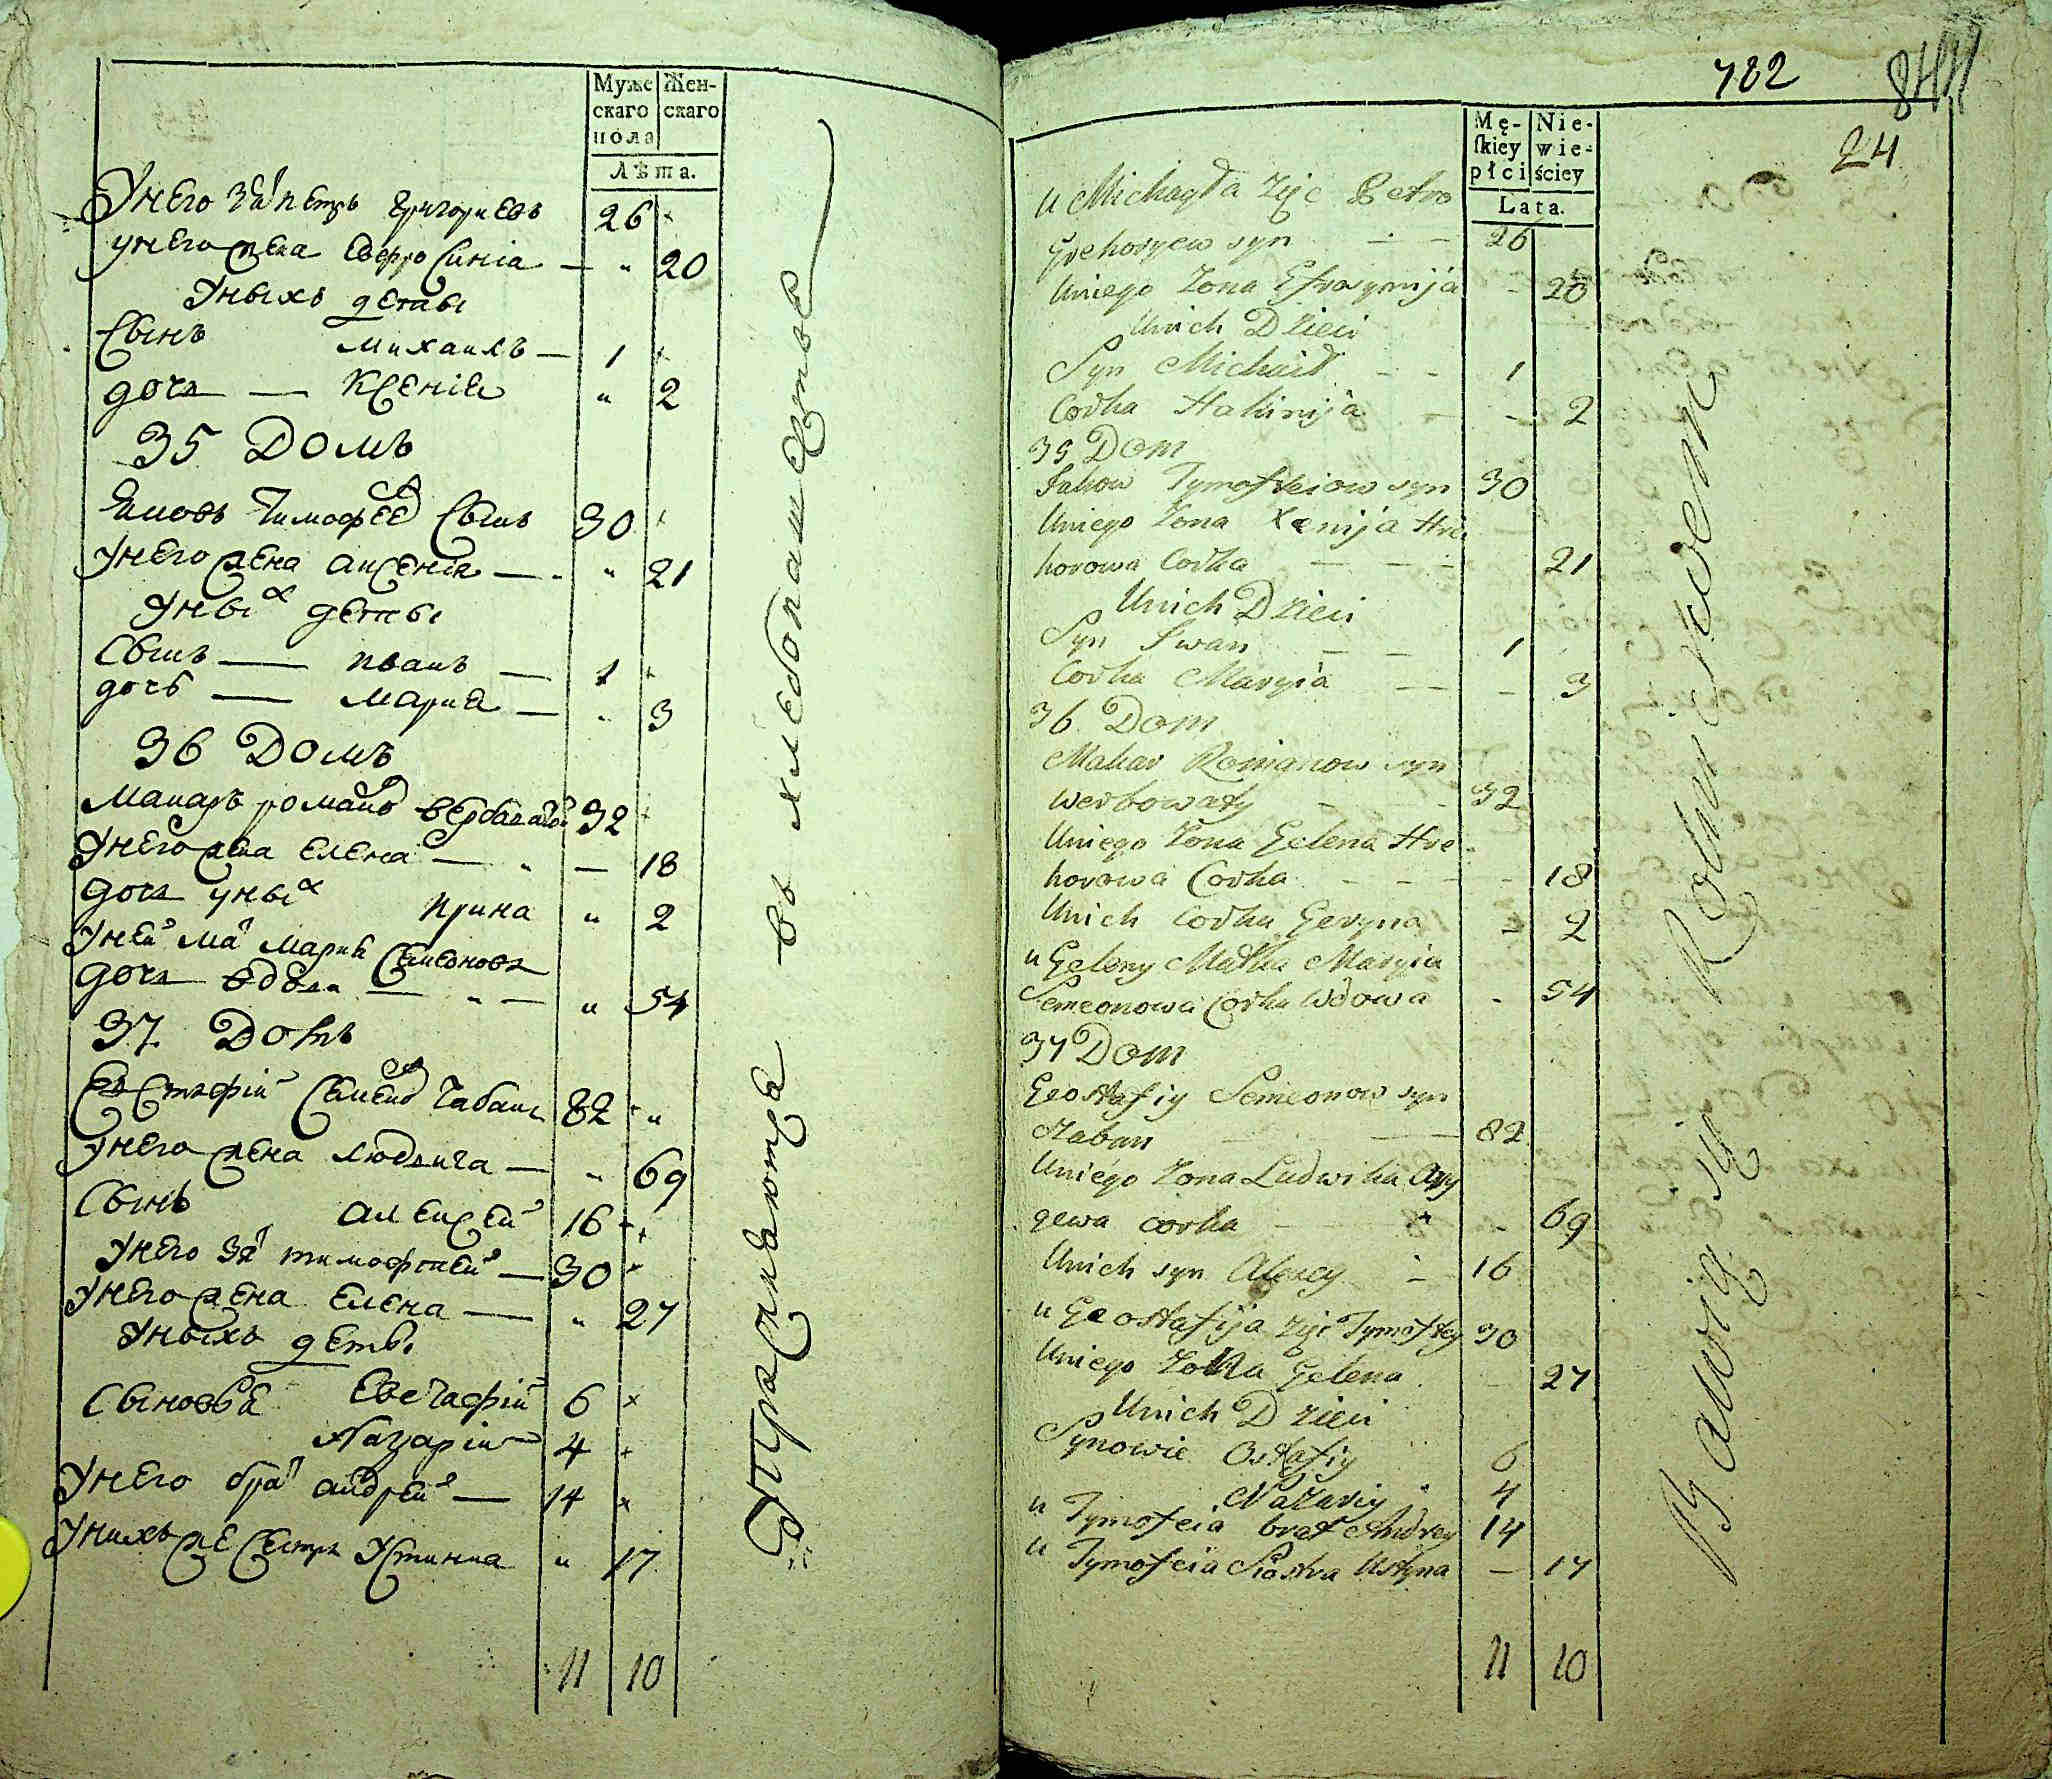 Муже Жен-
скаго скаго
пола
Лѣта.
У него зя͏т петръ григориевъ 26
у него жена Евфросиніа — " 20
У ныхъ деты
Сынъ михаилъ — 1
дочь — Ксеніа " 2
35 Домъ
Яковъ Тимофеев Сынъ 30
У него жена Аксеніа — " 21
У ных деты
Сынъ — иванъ — 1
дочь — Мариа — " 3
36 Домъ
Макаръ романов вербоватой 32
У него жена Елена — — 18
дочь у ных Ирина " 2
У ней мат Мариа Семенова
дочь вдова — " 54
37 Домъ
Евстафій Семенов Чабанъ 82 "
У него жена людвига — " 69
Сынъ Алексей 16
У него зят тимофтей — 30
У него жена Елена — " 27
У ныхъ деты
Сыновья Евстафій 6
Назарій 4
У него брат андрей — 14
У нихъ же Сестра Устинна " 17
11 10
Упражняются въ хлебопашестве
782 844
24
Mę- Nie-
skiey wie-
płci ściey
Lata.
u Michayła zięc Petro
Hrehoryew syn — — 26
Uniego Zona Efrosynija - 20
Unich Dzieci
Syn Michaił - - 1
Corka Hakinija - - 2
35 Dom
Jakow Tymofteiow syn 30
Uniego Zona Xenija Hre
horowa Corka — — — 21
Unich Dzieci
Syn Iwan — — 1
Corka Maryia — - 3
36 Dom
Makar Romanow syn
Werbowaty - - 32
Uniego Zona Gelena Hre-
horowa Corka - - - - 18
Unich Corka Geryna - 2
u Geleny Matka Maryia
Semeonowa Corka Wdowa - 54
37 Dom
Geostafiy Semeonow syn
Czaban — — 82
Uniego Zona Ludwika
gewa corka — - 69
Unich syn Alexey — 16
u Geostafija zięc Tymoftey 30
Uniego Zona Gelena — 27
Unich Dzieci
Synowie Ostafiy 6
Nazariy 4
u Tymofeia brat Andrey 14
u Tymofeia Siostra Ustyna — 17
11 10
Bawią się Rolnictwem